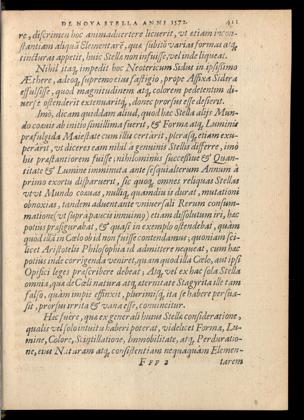 DE NOVA STELLA ANNI 1572. 411
re, discrimen hoc animadvertere licuerit, ut etiam incon-
stantiam aliquã Elementarẽ, quæ subitò varias formas atq;
tincturas appetit, huic Stellæ non infuisse, vel inde liqueat.
Nihil itaq; impedit hoc Neotericum Sidus in ipsissimo
Æthere, adeoq; supremo eius fastigio, prope Affixa Sidera
effulsisse, quod magnitudinem atq; colorem pedetentim di-
versè ostenderit extenuaritq;, donec prorsus esse desierit.
Imò, dicam quiddam aliud, quod hæc Stella alijs Mun-
do coævis ab initio simillima fuerit, & Forma atq; Luminis
præfulgida Maiestate cum illis certarit, plerasq; etiam exu-
perârit, ut diceres eam nihil à genuinis Stellis differre, imò
his præstantiorem fuisse; nihilominùs successivè & Quan-
titate & Lumine imminuta ante sesquialterum Annum à
primo exortu disparuerit, sic quoq; omnes reliquas Stellas
vtvt Mundo coævas, nullq; quamdiu is durat, mutationi
obnoxias, tandem adventante vniversali Rerum consum-
matione (vt suprà paucis innuimus) etiam dissolutum iri, hæc
potius præsigurabat, & quasi in exemplo ostendebat, quàm
quod illa in Cœlo ob id non fuisse contendamus; quoniam sci-
licet Aristotelis Philosophia id admittere nequeat, cum hæc
potius inde corrigenda veniret, quàm quod illa Cœlo, aut ipsi
Opifici leges præscribere debeat; Atq; vel ex hac sola Stella
omnia, quæ de Cœli natura atq; æternitate Stagyrita ille tam
falso, quàm impiè effinxit, plurimisq; ita se habere persua-
sit, prorsus irrita & vana esse, convincitur.
Hæc fuêre, quæ ex generali huius Stellæ consideratione,
qualis vel solo intuitu haberi poterat, videlicet Forma, Lu-
mine, Colore, Scintillatione, Immobilitate, atq; Perduratio-
ne, eius Naturam atq; consistentiam nequaquàm Elemen-
Fff 2 tarem